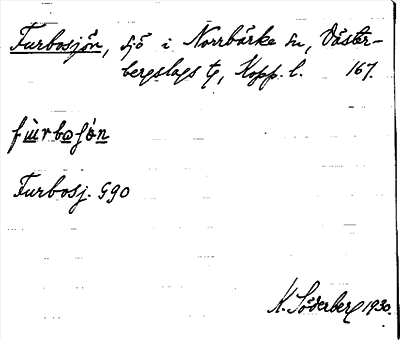 Furbosjön, sjö i Norrbärke sn, Väster-
bergslags tg, Kopp. l. 167.
fu̇rboʃön
Furbosj. G90
K. Söderberg 1930.